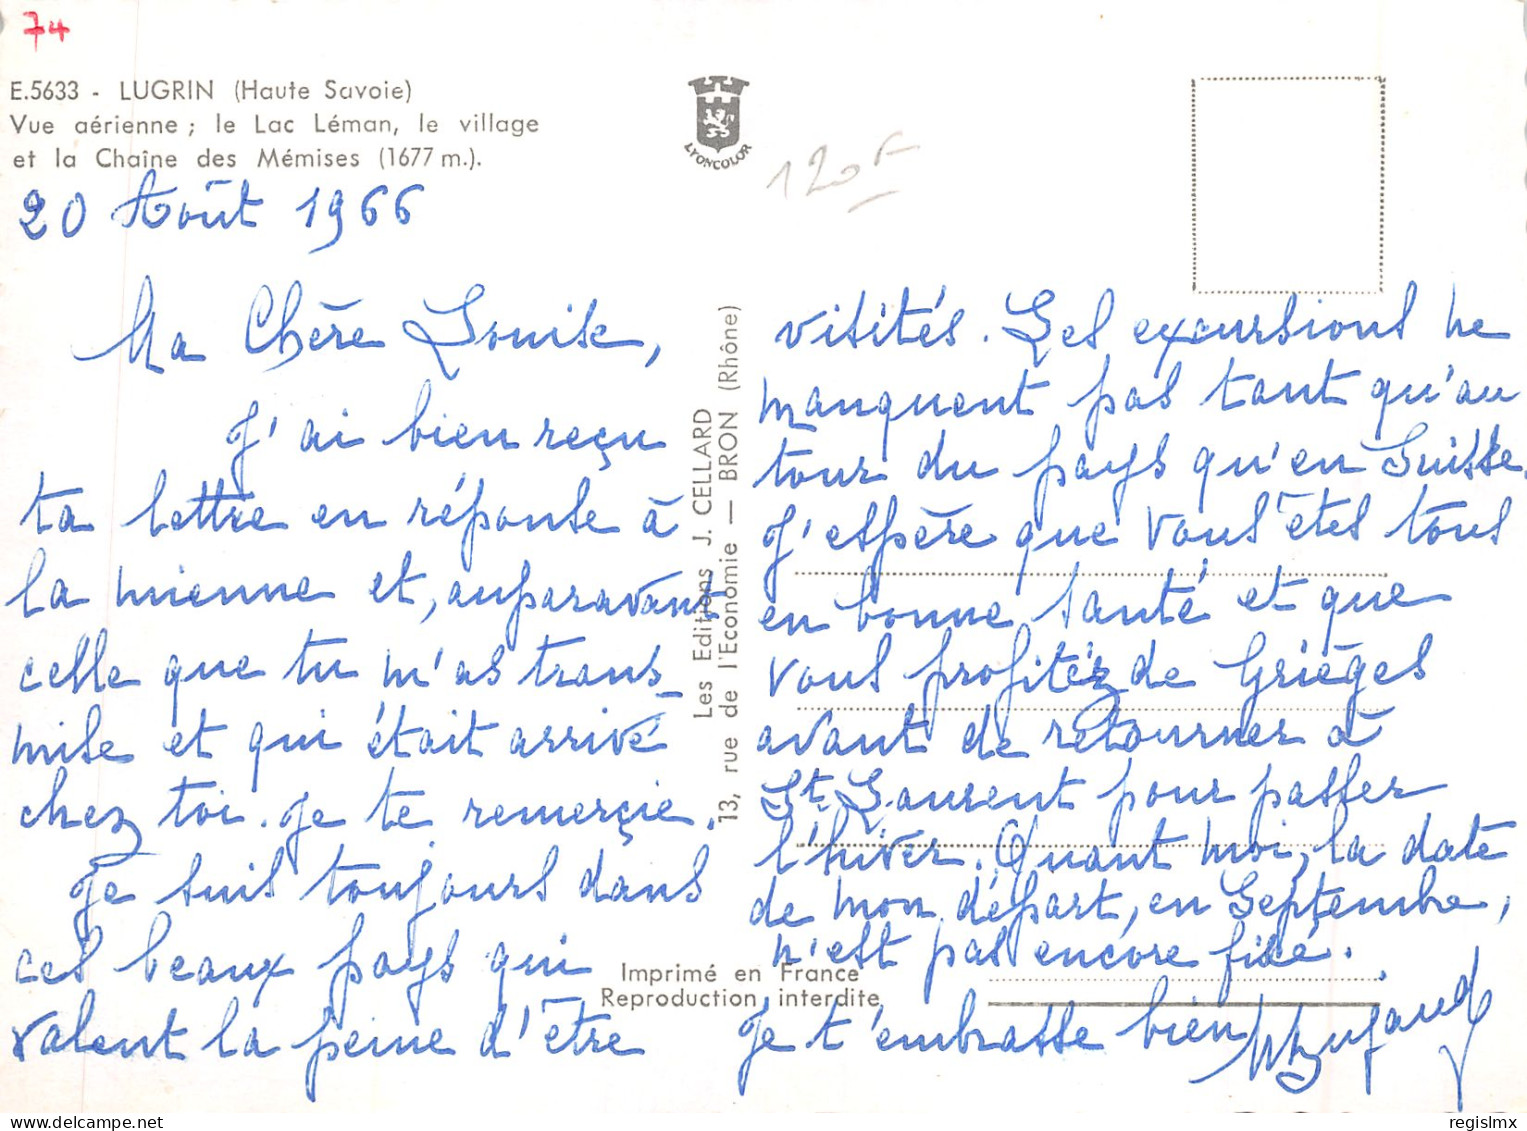 74
E.5633 - LUGRIN (Haute Savoie)
Vue aérienne ; le Lac Léman, le village
et la Chaîne des Mémises (1677 m.).
LYONCOLOR
120F
20 Août 1966
Ma Chère Louise,
J'ai bien reçu
ta lettre en réponse à
la mienne et, auparavant
celle que tu m'as trans_
mise et qui était arrivé
chez toi. Je te remerçie.
Je suis toujours dans
ces beaux pays qui
valent la peine d'être
Les Editions J. CELLARD
13, rue de l'Economie — BRON (Rhône)
Imprimé en France
Reproduction interdite
visités. Les excursions ne
manquent pas tant qu'au
tour du pays qu'en Suisse.
J'espère que vous êtes tous
en bonne santé et que
vous profitéz de Grièges
avant de retourner à
St. Laurent pour passer
l'hiver. Quant moi, la date
de mon départ, en Septembre,
n'est pas encore fixé.
Je t'embrasse bien
regislmx